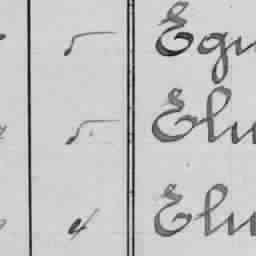 5 Egu
5. Elu
4 Elu